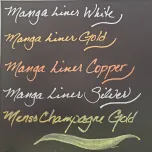 Manga Liner White
Manga Liner Gold
Manga Liner Copper
Manga Liner Silver
Menso Champagne Gold